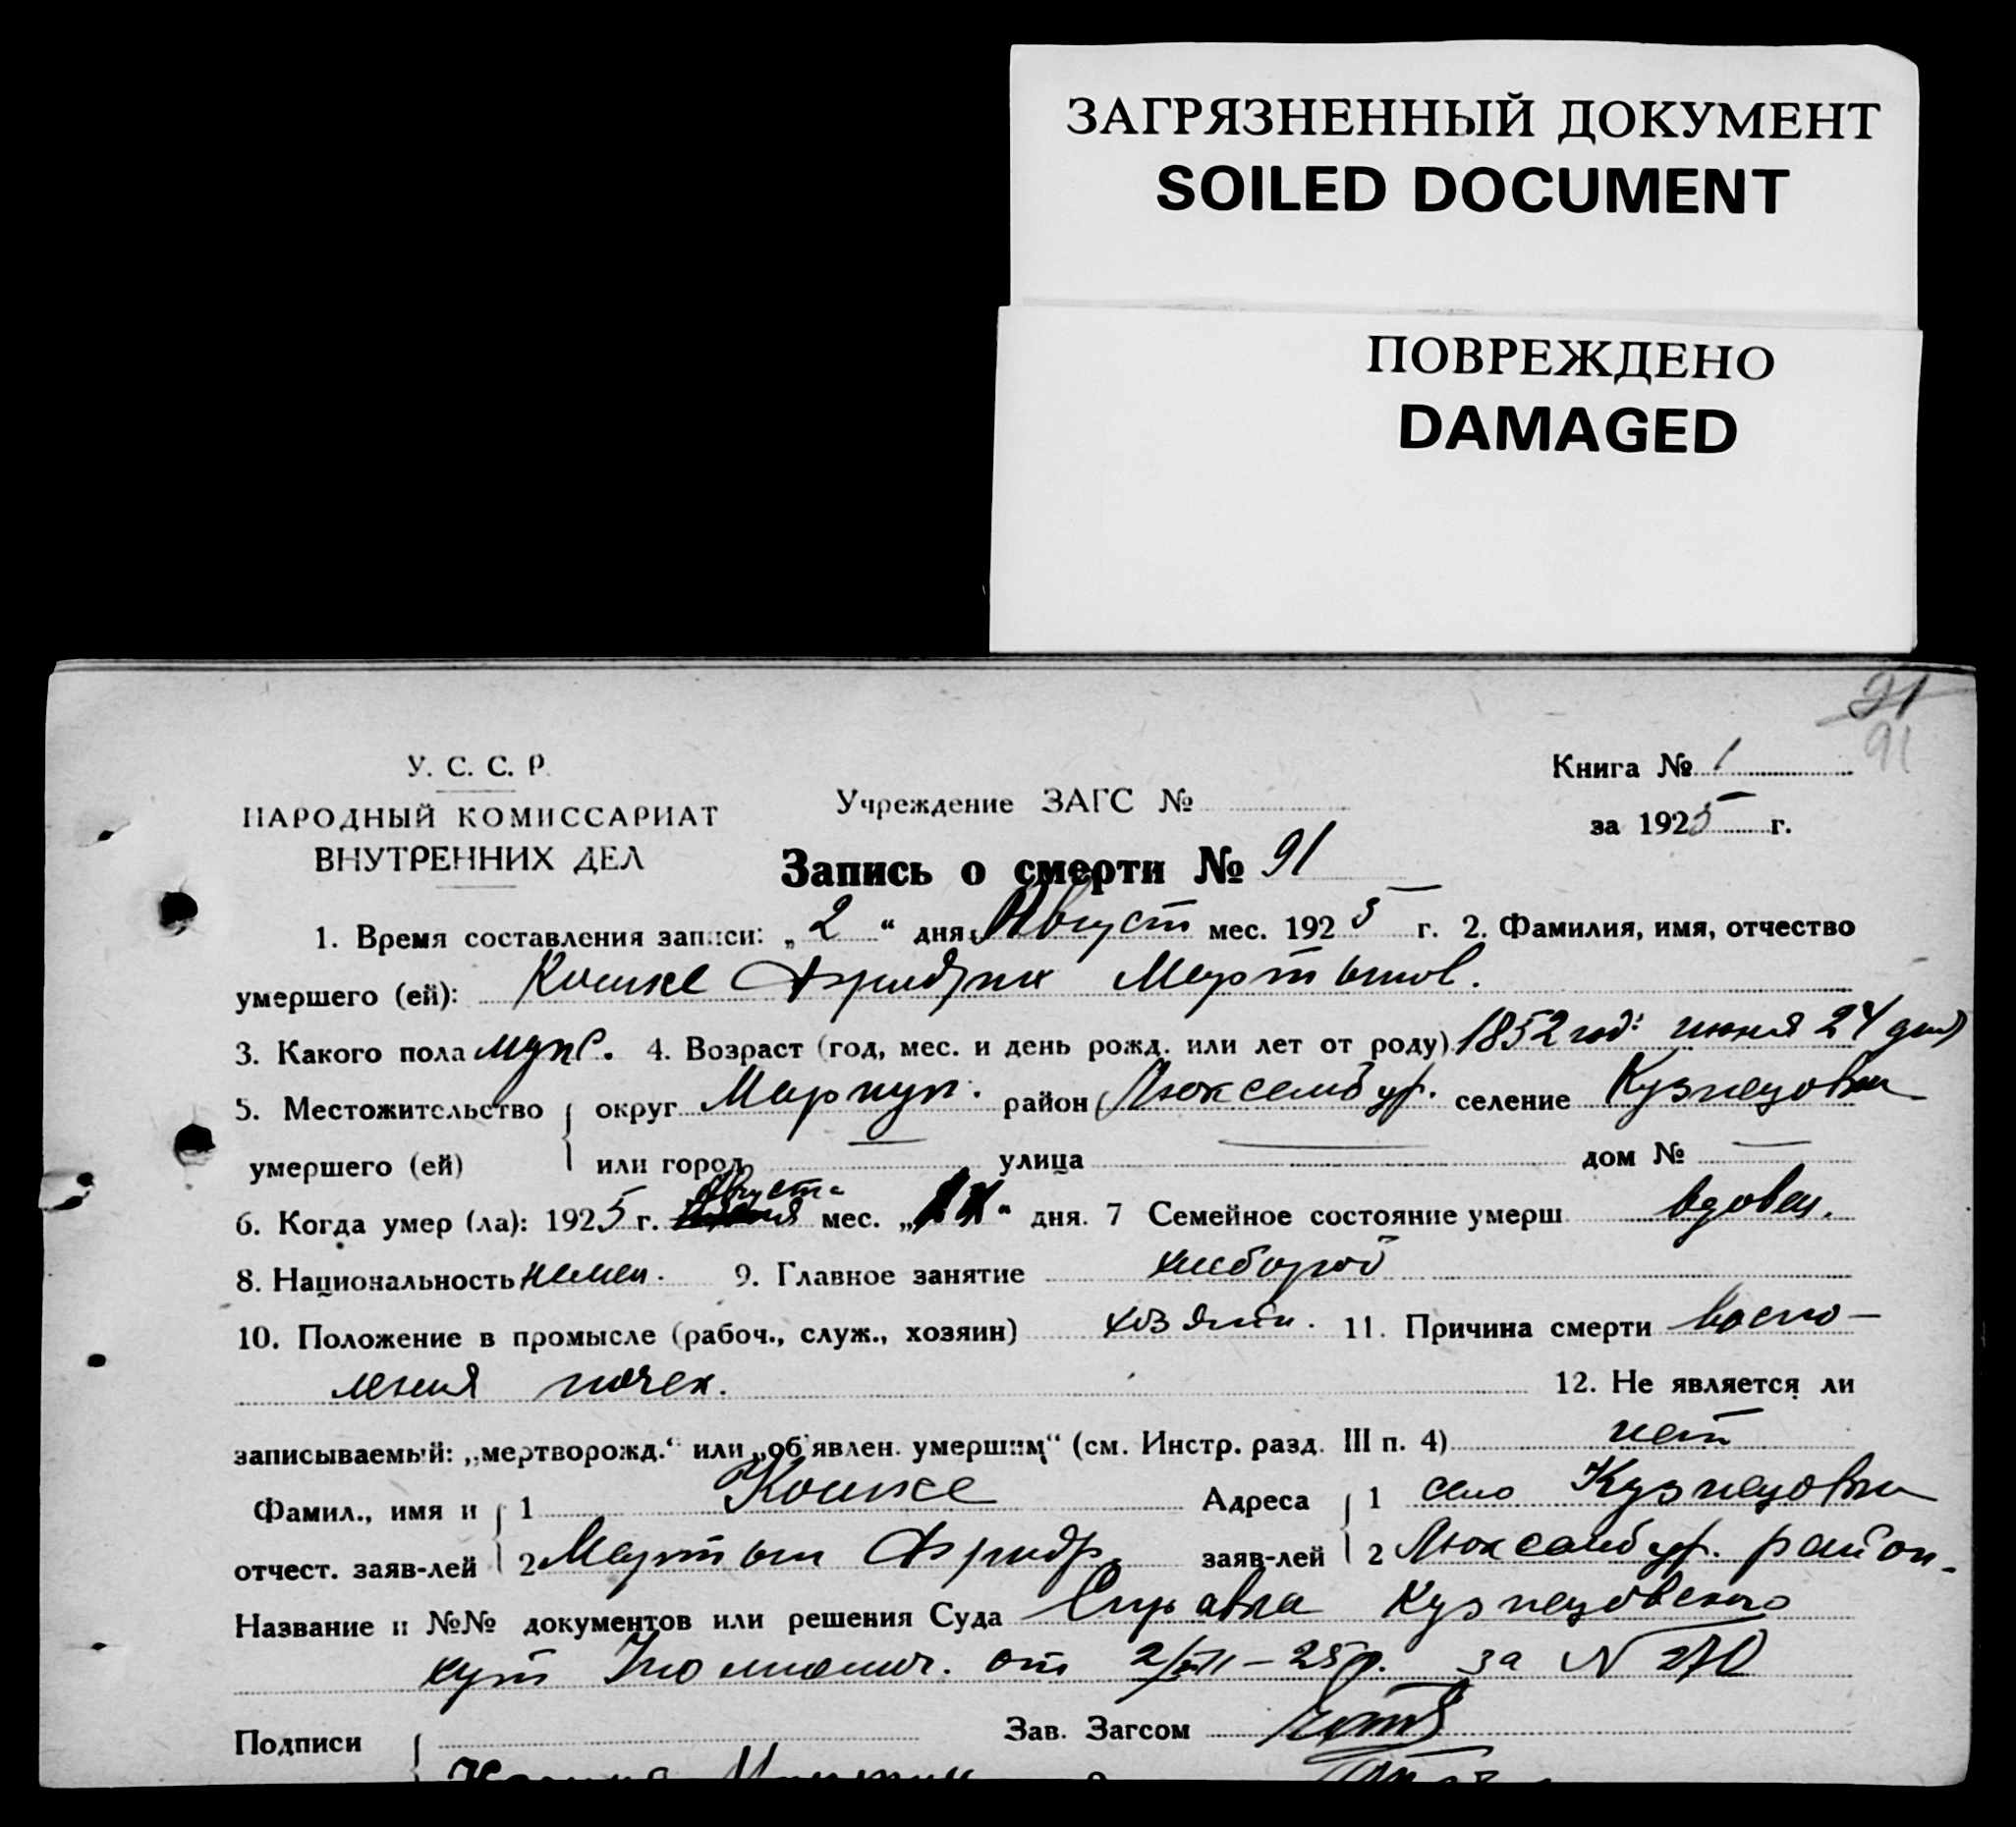 ЗАГРЯЗНЕННЫЙ ДОКУМЕНТ
SOILED DOCUMENT
ПОВРЕЖДЕНО
DAMAGED
21
91
У. С. С. Р.
НАРОДНЫЙ КОМИССАРИАТ
ВНУТРЕННИХ ДЕЛ
Учреждение ЗАГС №
Книга № 1
за 1925 г.
Запись о смерти № 91
1. Время составления записи: „2“ дня Август мес. 1925 г. 2. Фамилия, имя, отчество
умершего (ей): Кошке Фридрих Мартынов.
3. Какого пола муж. 4. Возраст (год, мес. и день рожд. или лет от роду) 1852 год: июня 24 дня
5. Местожительство округ Мариуп. район Люксембур. селение Кузнецовка
умершего (ей) или город — улица — дом № —
6. Когда умер (ла): 1925 г. Августа мес. „ “ дня. 7 Семейное состояние умерш. вдовец.
8. Национальность немец. 9. Главное занятие хлебороб
10. Положение в промысле (рабоч., служ., хозяин) хозяин. 11. Причина смерти воспо-
ления почек. 12. Не является ли
записываемый: „мертворожд.“ или „об'явлен. умершим“ (см. Инстр. разд. III п. 4) нет
Фамил., имя и 1 Кошке Адреса 1 село Кузнецовка
отчест. заяв-лей 2 Мартын Фридр. заяв-лей 2 Люксембур. район.
Название и №№ документов или решения Суда Справка Кузнецовского
от 2/VIII-25р. за N 270
Подписи Зав. Загсом